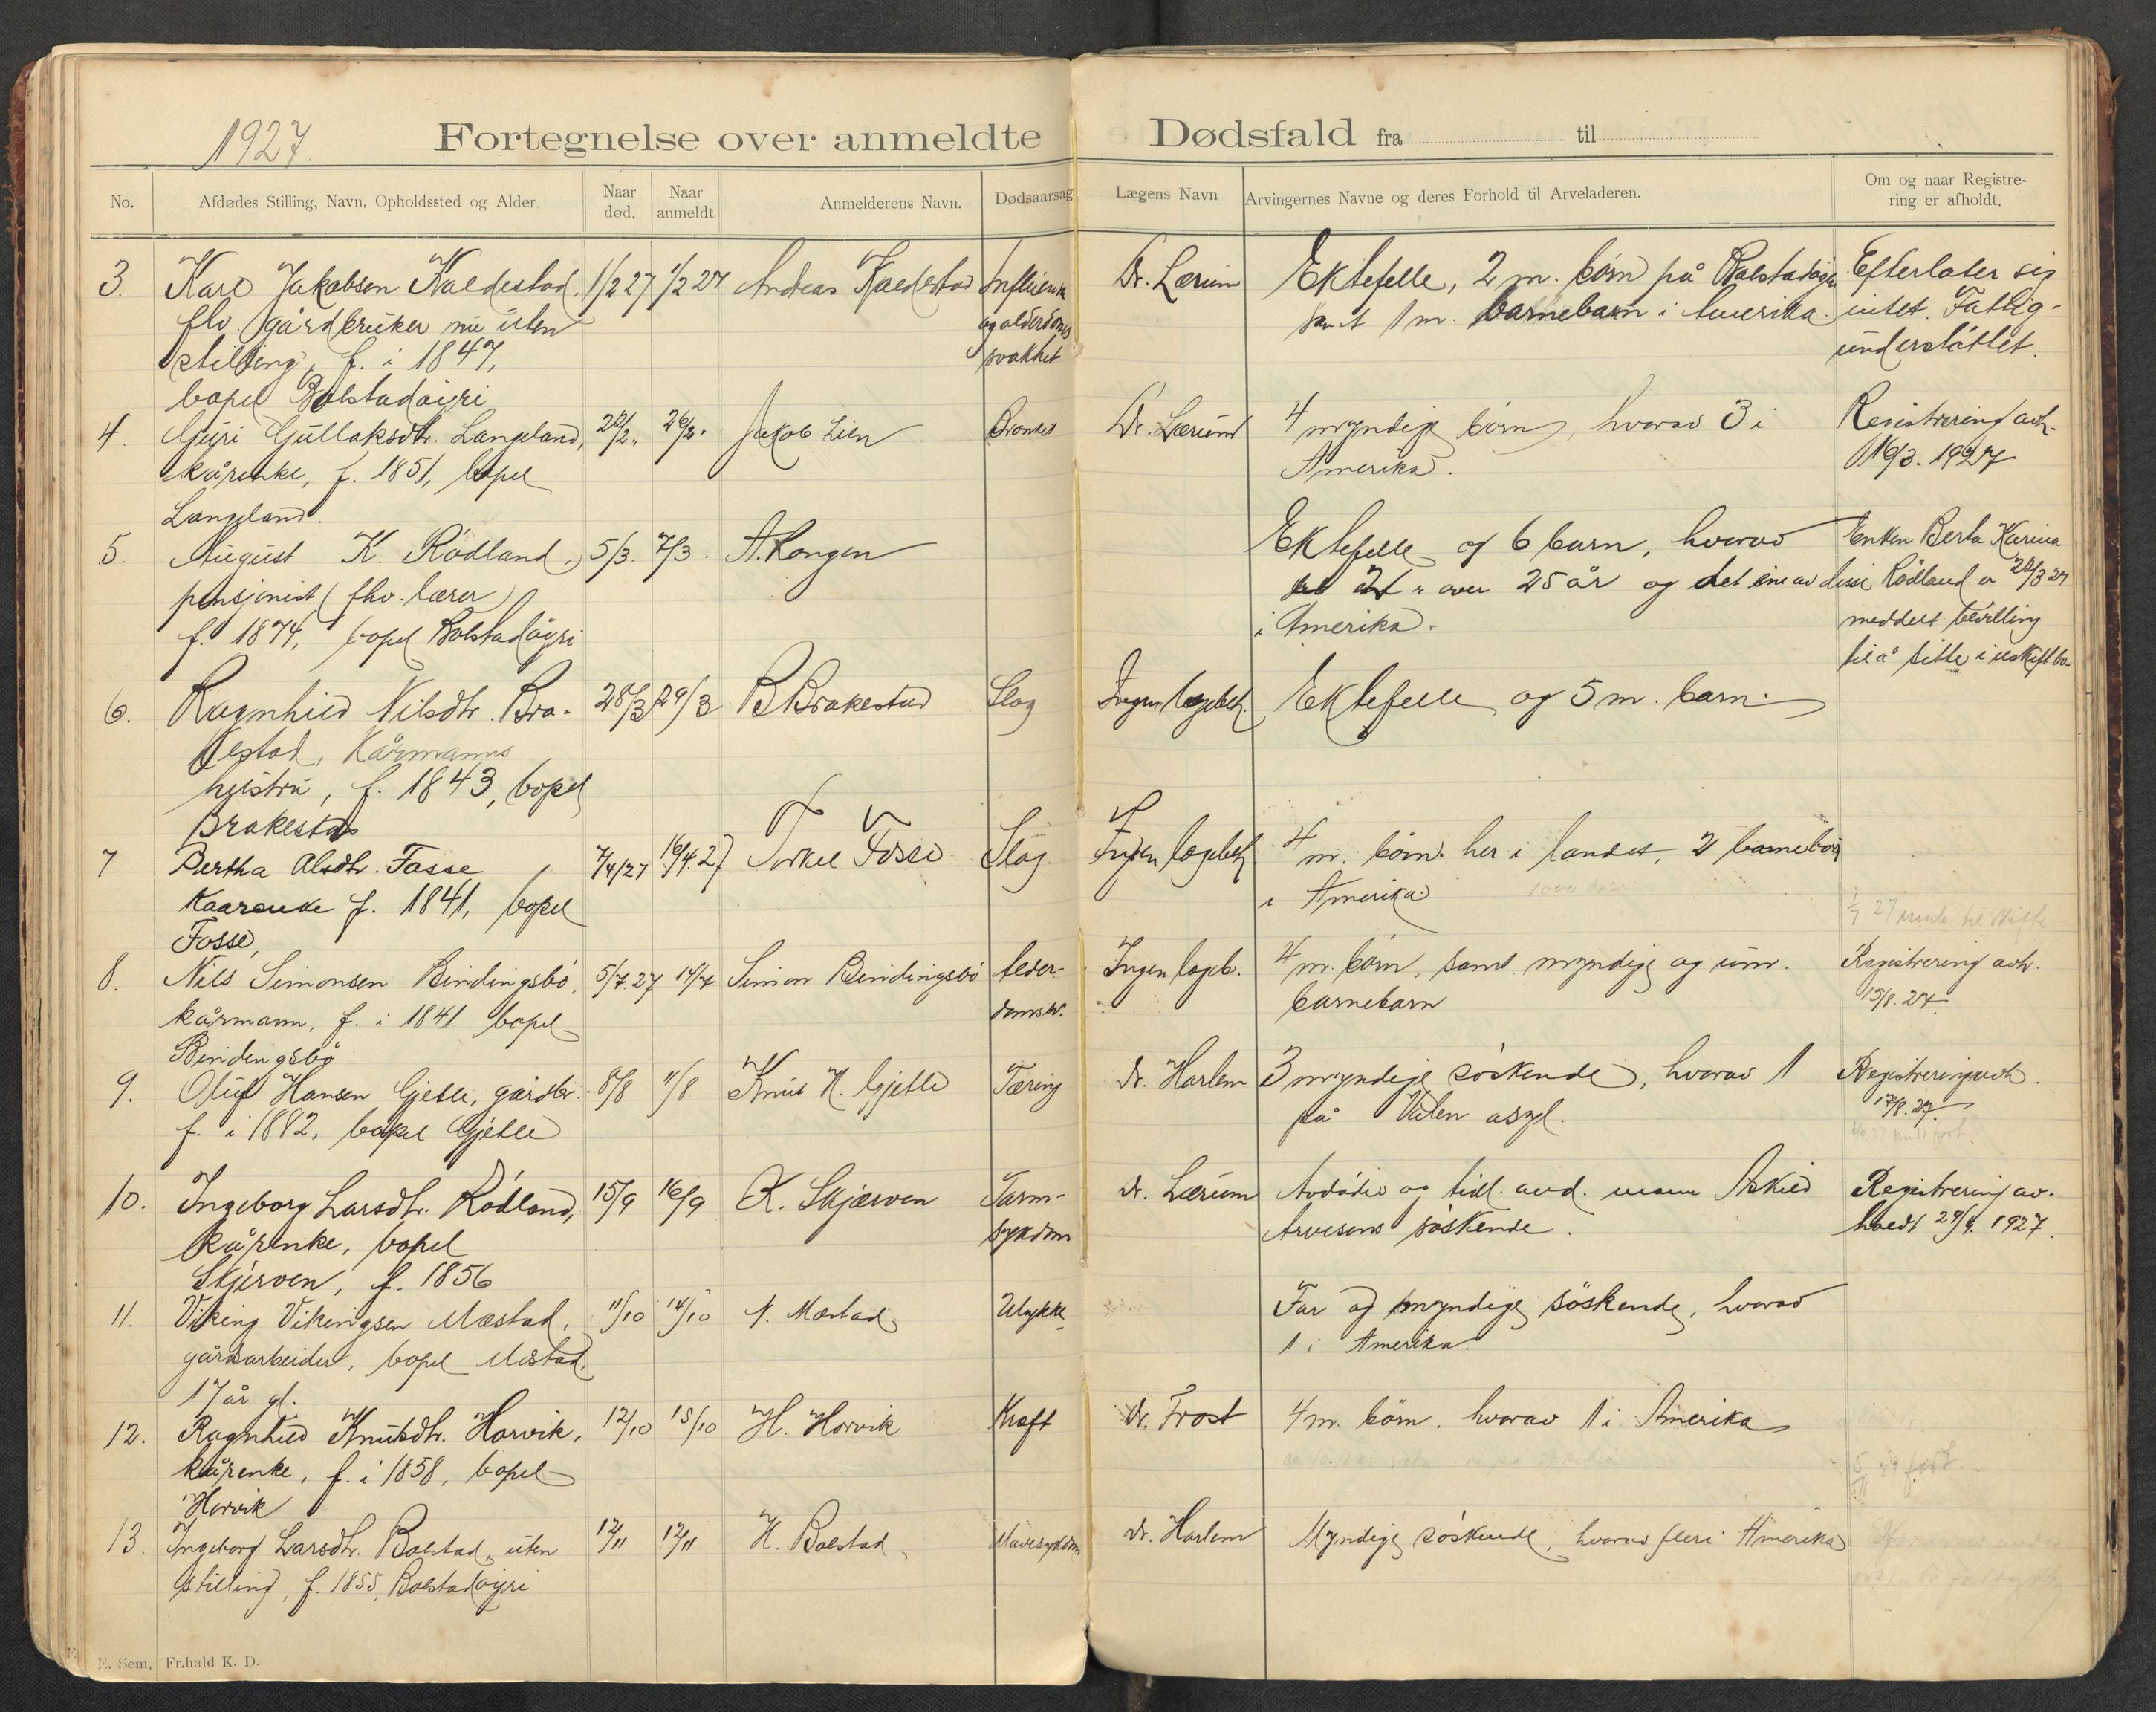 1927.
Fortegnelse over anmeldte Dødsfald fra til
No.
Afdødes Stilling, Navn, Opholdssted og Alder.
Naar død.
Naar anmeldt
Anmelderens Navn.
Dødsaarsag
Lægens Navn
Arvingernes Navne og deres Forhold til Arveladeren.
Om og naar Registrering er afholdt.
3. Kare Jakobsen Kaldestad, 1/2 27 1/2 27 Andreas Kaldestad Influensa Dr. Lærum Ektefelle, 2 m. börn på Bolstadöyri Efterlater sig
fhv. gårdbruker nu uten og alderdoms samt 1 m. barnebarn i Amerika. intet. Fattig-
stilling, f. i 1847, svakhet understöttet.
bopel Bolstadöyri
4. Gyri Gullaksdtr. Langeland, 26/2. Jakob Lien Dr. Lærum 4 myndige börn, hvorav 3 i Registrering avh.
kårenke, f. 1851, bopel Amerika. 16/3. 1927
Langeland.
5. August K. Rödland, 5/3. 7/3. A. Rongen Ektefelle og 6 barn, hvorav Enken Berta Karina
pensjonist (fhv. lærer) er over 25 år og det ene av disse Rödland er 22/3 27
f. 1874, bopel Bolstadöyri i Amerika. meddelt bevilling
til å sitte i uskift bo.
6. Ragnhild Nilsdtr. Bra- 28/3 29/3 B Brakestad Slag Ingen lægebeh. Ektefelle og 5 m. barn.
kestad, Kårmanns
hustru, f. 1843, bopel
Brakestad
7 Bertha Olsdtr. Fosse 7/4/27 16/4.27 Torkel Fosse Slag Ingen lægebeh. 4 m. börn her i landet, 2 barnebörn
Kaarenke f. 1841, bopel i Amerika 1000
Fosse,
8. Nils Simonsen Bindingsbö, 5/7 27 14/7 Simon Bindingsbö Alder- Ingen lægeb. 4 m. börn, samt myndige og um. Registrering avh.
kårmann, f. i 1841 bopel domssv. barnebarn 15/8. 27
Bindingsbö
9. Oluf Hansen Gjelle, gårdbr. 8/8 11/8 Knut H. Gjelle Tæring dr. Harlem 3 myndige söskende, hvorav 1 Registrering avh.
f. i 1882, bopel Gjelle på Valen asyl. 17/8. 27
10. Ingeborg Larsdtr. Rödland, 15/9 16/9 K. Skjerven Tarm- dr. Lærum Avdöde og tidl. avd. mann Askild Registrering av-
kårenke, bopel sykdom Arvesens söskende. holdt 29/9. 1927.
Skjerven, f. 1856
11. Viking Vikingsen Mestad, 11/10 14/10 Mestad Ulykke Far og myndige söskende, hvorav
gårdsarbeider, bopel Mestad, 1 i Amerika.
17 år gl.
12. Ragnhild Knutsdtr. Horvik, 12/10 15/10 H. Horvik Kræft dr. Frost 4 m. börn, hvorav 1 i Amerika
kårenke, f. i 1858, bopel
Horvik
13. Ingeborg Larsdtr. Bolstad, uten 12/11 12/11 H. Bolstad Mavesykdom dr. Harlem Myndige söskende, hvorav flere i Amerika
stilling, f. 1855, Bolstadöyri
E. Sem, Fr.hald K. D.